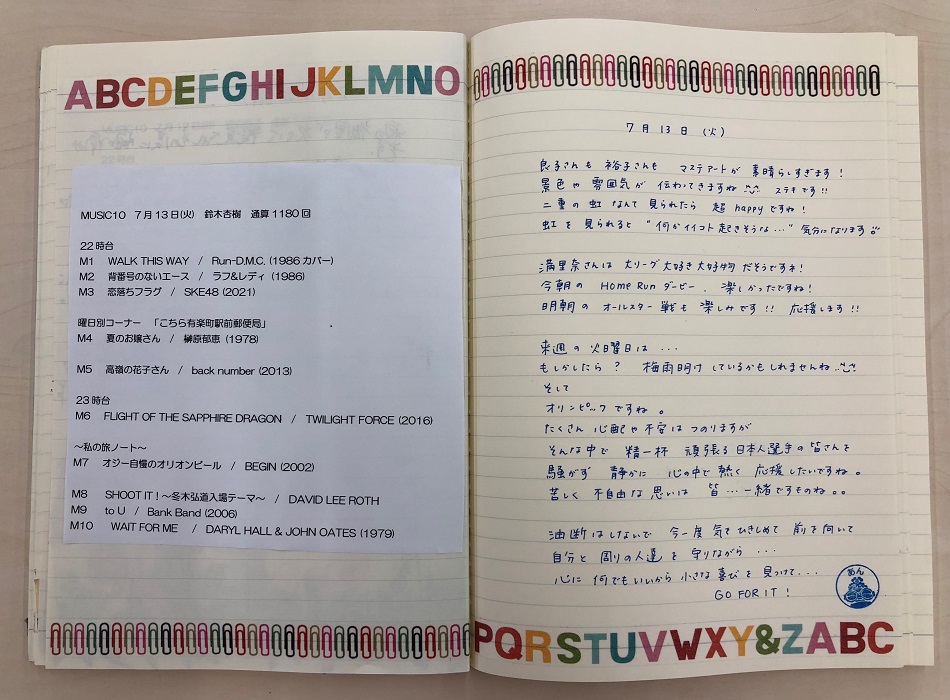 ABCDEFGHIJKLMNO
MUSIC10 7月13日(火) 鈴木杏樹 通算1180回
22時台
M1 WALK THIS WAY / Run-D.M.C. (1986 カバー)
M2 背番号のないエース / ラフ&レディ (1986)
M3 恋落ちフラグ / SKE48 (2021)
曜日別コーナー 「こちら有楽町駅前郵便局」
M4 夏のお嬢さん / 榊原郁恵 (1978)
M5 高嶺の花子さん / back number (2013)
23時台
M6 FLIGHT OF THE SAPPHIRE DRAGON / TWILIGHT FORCE (2016)
~私の旅ノート~
M7 オジー自慢のオリオンビール / BEGIN (2002)
M8 SHOOT IT!~冬木弘道入場テーマ~ / DAVID LEE ROTH
M9 to U / Bank Band (2006)
M10 WAIT FOR ME / DARYL HALL & JOHN OATES (1979)
7月13日 (火)
良子さんも 裕子さんも マステアートが 素晴らしすぎます!
景色や 雰囲気が 伝わってきますね ステキです!!
二重の虹 なんて 見られたら 超 happyですね!
虹を見られると "何かイイコト起きそうな…" 気分になります
満里奈さんは 大リーグ大好き大好物 だそうですネ!
今朝の HOME RUN ダービー、楽しかったですね!
明朝の オールスター戦も 楽しみです!! 応援します!!
来週の火曜日は ...
もしかしたら? 梅雨明け しているかもしれませんね
そして
オリンピックですね。
たくさん 心配や不安は つのりますが
そんな中で 精一杯 頑張る日本人選手の皆さんを
騒がず 静かに 心の中で 熱く 応援したいですね。
苦しく 不自由な思いは 皆…一緒ですものね。。
油断はしないで 今一度 気をひきしめて 前を向いて
自分と 周りの人達を 守りながら ...
心に 何でもいいから 小さな喜びを 見つけて...
GO FOR IT!
あん
PQRSTUVWXY&ZABC